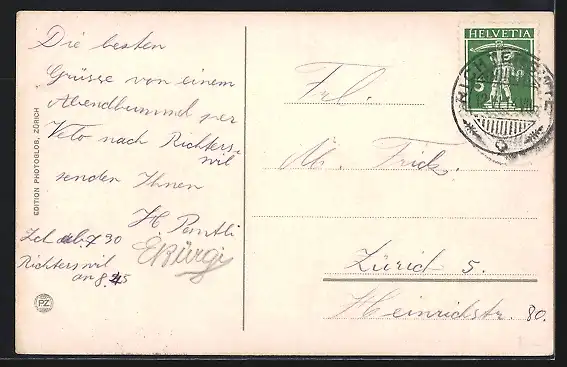 Die besten
Grüsse von einem
Abendbummel per
Velo nach Richters-
wil
senden Ihnen
H. Pantli
EBürgi
Zch ab. 7 30
Richterswil
an 8.45
EDITION PHOTOGLOB, ZÜRICH
PZ
HELVETIA
5
Frl.
M. Frick.
Zürich 5.
Heinrichstr. 80.